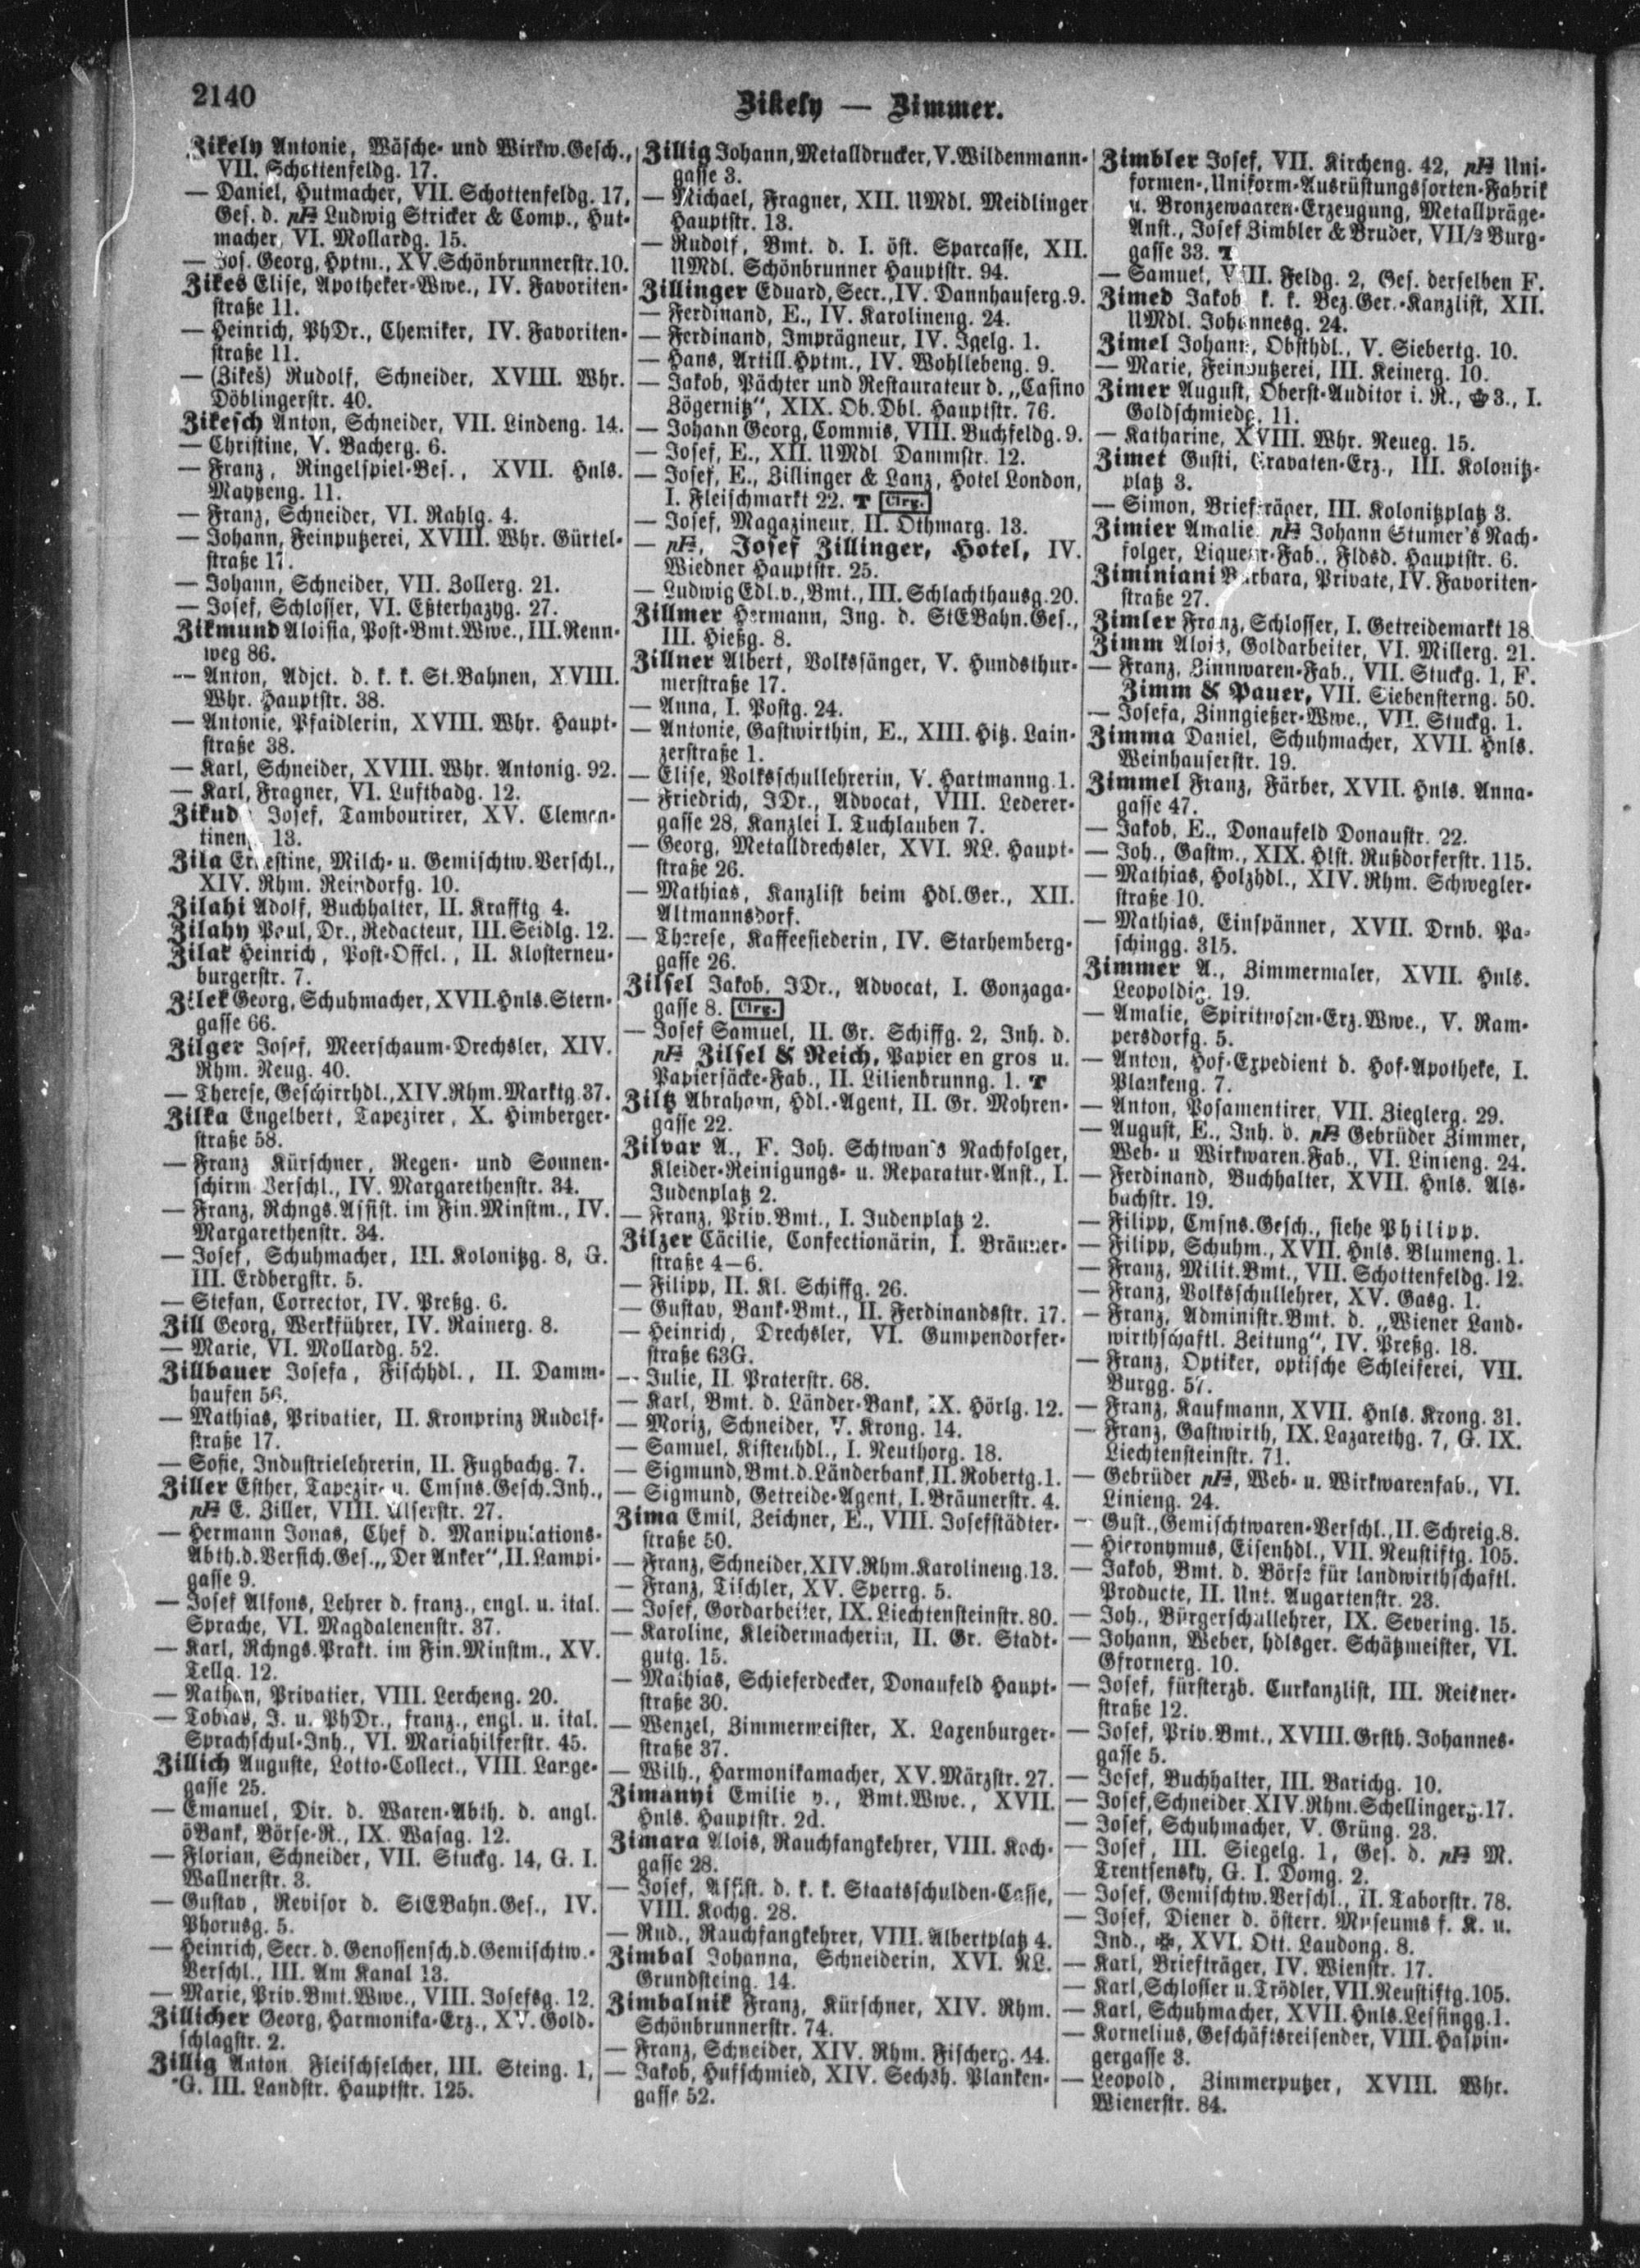 2140
Zikely — Zimmer.
Zikely Antonie, Wäsche- und Wirkw.Gesch.,
VII. Schottenfeldg. 17.
— Daniel, Hutmacher, VII. Schottenfeldg. 17,
Ges. d. Ludwig Stricker & Comp., Hut-
macher, VI. Mollardg. 15.
— Jos. Georg, Hptm., XV. Schönbrunnerstr. 10.
Zikes Elise, Apotheker-Wwe., IV. Favoriten-
straße 11.
— Heinrich, PhDr., Chemiker, IV. Favoriten-
straße 11.
— (Zikeš) Rudolf, Schneider, XVIII. Whr.
Döblingerstr. 40.
Zikesch Anton, Schneider, VII. Lindeng. 14.
— Christine, V. Bacherg. 6.
— Franz, Ringelspiel-Bes., XVII. Hnls.
Mayßeng. 11.
— Franz, Schneider, VI. Rahlg. 4.
— Johann, Feinputzerei, XVIII. Whr. Gürtel-
straße 17.
— Johann, Schneider, VII. Zollerg. 21.
— Josef, Schlosser, VI. Eßterhazyg. 27.
Zikmund Aloisia, Post-Bmt.Wwe., III. Renn-
weg 86.
— Anton, Adjct. d. k. k. St.Bahnen, XVIII.
Whr. Hauptstr. 38.
— Antonie, Pfaidlerin, XVIII. Whr. Haupt-
straße 38.
— Karl, Schneider, XVIII. Whr. Antonig. 92.
— Karl, Fragner, VI. Luftbadg. 12.
Zikud Josef, Tambourirer, XV. Clemen-
tineng. 13.
Zila Ernestine, Milch- u. Gemischtw.Verschl.,
XIV. Rhm. Reindorfg. 10.
Zilahi Adolf, Buchhalter, II. Krafftg. 4.
Zilahy Paul, Dr., Redacteur, III. Seidlg. 12.
Zilak Heinrich, Post-Offcl., II. Klosterneu-
burgerstr. 7.
Zilek Georg, Schuhmacher, XVII. Hnls. Stern-
gasse 66.
Zilger Josef, Meerschaum-Drechsler, XIV.
Rhm. Neug. 40.
— Therese, Geschirrhdl., XIV. Rhm. Marktg. 37.
Zilka Engelbert, Tapezirer, X. Himberger-
straße 58.
— Franz Kürschner, Regen- und Sonnen-
schirm Verschl., IV. Margarethenstr. 34.
— Franz, Rchngs.Assist. im Fin.Minstm., IV.
Margarethenstr. 34.
— Josef, Schuhmacher, III. Kolonitzg. 8, G.
III. Erdbergstr. 5.
— Stefan, Corrector, IV. Preßg. 6.
Zill Georg, Werkführer, IV. Rainerg. 8.
— Marie, VI. Mollardg. 52.
Zillbauer Josefa, Fischhdl., II. Damm-
haufen 56.
— Mathias, Privatier, II. Kronprinz Rudolf-
straße 17.
— Sofie, Industrielehrerin, II. Fugbachg. 7.
Ziller Esther, Tapezir- u. Cmsns.Gesch.Inh.,
E. Ziller, VIII. Alserstr. 27.
— Hermann Jonas, Chef d. Manipulations-
Abth.d.Versich.Ges. „Der Anker", II. Lampi-
gasse 9.
— Josef Alfons, Lehrer d. franz., engl. u. ital.
Sprache, VI. Magdalenenstr. 37.
— Karl, Rchngs.Prakt. im Fin.Minstm., XV.
Tellg. 12.
— Nathan, Privatier, VIII. Lercheng. 20.
— Tobias, J. u. PhDr., franz., engl. u. ital.
Sprachschul-Inh., VI. Mariahilferstr. 45.
Zillich Auguste, Lotto-Collect., VIII. Lange-
gasse 25.
— Emanuel, Dir. d. Waren-Abth. d. angl.
öBank, Börse-R., IX. Wasag. 12.
— Florian, Schneider, VII. Stuckg. 14, G. I.
Wallnerstr. 3.
— Gustav, Revisor d. StEBahn.Ges., IV.
Phorusg. 5.
— Heinrich, Secr. d. Genossensch.d.Gemischtw.-
Verschl., III. Am Kanal 13.
— Marie, Priv.Bmt.Wwe., VIII. Josefsg. 12.
Zillicher Georg, Harmonika-Erz., XV. Gold-
schlagstr. 2.
Zillig Anton Fleischselcher, III. Steing. 1,
G. III. Landstr. Hauptstr. 125.
Zillig Johann, Metalldrucker, V. Wildenmann-
gasse 3.
— Michael, Fragner, XII. UMdl. Meidlinger
Hauptstr. 13.
— Rudolf, Bmt. d. I. öst. Sparcasse, XII.
UMdl. Schönbrunner Hauptstr. 94.
Zillinger Eduard, Secr., IV. Dannhauserg. 9.
— Ferdinand, E., IV. Karolineng. 24.
— Ferdinand, Imprägneur, IV. Igelg. 1.
— Hans, Artill.Hptm., IV. Wohllebeng. 9.
— Jakob, Pächter und Restaurateur d. „Casino
Zögernitz", XIX. Ob. Dbl. Hauptstr. 76.
— Johann Georg, Commis, VIII. Buchfeldg. 9.
— Josef, E., XII. UMdl. Dammstr. 12.
— Josef, E., Zillinger & Lanz, Hotel London,
I. Fleischmarkt 22. T Clrg.
— Josef, Magazineur, II. Othmarg. 13.
— Josef Zillinger, Hotel, IV.
Wiedner Hauptstr. 25.
— Ludwig Edl.v., Bmt., III. Schlachthausg. 20.
Zillmer Hermann, Ing. d. StEBahn.Ges.,
III. Hießg. 8.
Zillner Albert, Volkssänger, V. Hundsthur-
merstraße 17.
— Anna, I. Postg. 24.
— Antonie, Gastwirthin, E., XIII. Hitz. Lain-
zerstraße 1.
— Elise, Volksschullehrerin, V. Hartmanng. 1.
— Friedrich, JDr., Advocat, VIII. Lederer-
gasse 28, Kanzlei I. Tuchlauben 7.
— Georg, Metalldrechsler, XVI. NL. Haupt-
straße 26.
— Mathias, Kanzlist beim Hdl.Ger., XII.
Altmannsdorf.
— Therese, Kaffeesiederin, IV. Starhemberg-
gasse 26.
Zilsel Jakob, JDr., Advocat, I. Gonzaga-
gasse 8. Clrg.
— Josef Samuel, II. Gr. Schiffg. 2, Inh. d.
Zilsel & Reich, Papier en gros u.
Papiersäcke-Fab., II. Lilienbrunng. 1. T
Ziltz Abraham, Hdl.-Agent, II. Gr. Mohren-
gasse 22.
Zilvar A., F. Joh. Schtwan's Nachfolger,
Kleider-Reinigungs- u. Reparatur-Anst., I.
Judenplatz 2.
— Franz, Priv.Bmt., I. Judenplatz 2.
Zilzer Cäcilie, Confectionärin, I. Bräuner-
straße 4—6.
— Filipp, II. Kl. Schiffg. 26.
— Gustav, Bank-Bmt., II. Ferdinandsstr. 17.
— Heinrich, Drechsler, VI. Gumpendorfer-
straße 63G.
— Julie, II. Praterstr. 68.
— Karl, Bmt. d. Länder-Bank, IX. Hörlg. 12.
— Moriz, Schneider, V. Krong. 14.
— Samuel, Kistenhdl., I. Neuthorg. 18.
— Sigmund, Bmt.d.Länderbank, II. Robertg. 1.
— Sigmund, Getreide-Agent, I. Bräunerstr. 4.
Zima Emil, Zeichner, E., VIII. Josefstädter-
straße 50.
— Franz, Schneider, XIV. Rhm. Karolineng. 13.
— Franz, Tischler, XV. Sperrg. 5.
— Josef, Gordarbeiter, IX. Liechtensteinstr. 80.
— Karoline, Kleidermacherin, II. Gr. Stadt-
gutg. 15.
— Mathias, Schieferdecker, Donaufeld Haupt-
straße 30.
— Wenzel, Zimmermeister, X. Laxenburger-
straße 37.
— Wilh., Harmonikamacher, XV. Märzstr. 27.
Zimányi Emilie v., Bmt.Wwe., XVII.
Hnls. Hauptstr. 2d.
Zimara Alois, Rauchfangkehrer, VIII. Koch-
gasse 28.
— Josef, Assist. d. k. k. Staatsschulden-Casse,
VIII. Kochg. 28.
— Rud., Rauchfangkehrer, VIII. Albertplatz 4.
Zimbal Johanna, Schneiderin, XVI. NL.
Grundsteing. 14.
Zimbalnik Franz, Kürschner, XIV. Rhm.
Schönbrunnerstr. 74.
— Franz, Schneider, XIV. Rhm. Fischerg. 44.
— Jakob, Hufschmied, XIV. Sechsh. Planken-
gasse 52.
Zimbler Josef, VII. Kircheng. 42, Uni-
formen-, Uniform-Ausrüstungssorten-Fabrik
u. Bronzewaaren-Erzeugung, Metallpräge-
Anst., Josef Zimbler & Bruder, VII/2 Burg-
gasse 33. T
— Samuel, VIII. Feldg. 2, Ges. derselben F.
Zimed Jakob k. k. Bez.Ger.-Kanzlist, XII.
UMdl. Johannesg. 24.
Zimel Johann, Obsthdl., V. Siebertg. 10.
— Marie, Feinputzerei, III. Keinerg. 10.
Zimer August, Oberst-Auditor i. R., 3., I.
Goldschmiedg. 11.
— Katharine, XVIII. Whr. Neueg. 15.
Zimet Gusti, Cravaten-Erz., III. Kolonitz-
platz 3.
— Simon, Briefträger, III. Kolonitzplatz 3.
Zimier Amalie, Johann Stumer's Nach-
folger, Liqueur-Fab., Fldsd. Hauptstr. 6.
Ziminiani Barbara, Private, IV. Favoriten-
straße 27.
Zimler Franz, Schlosser, I. Getreidemarkt 18.
Zimm Alois, Goldarbeiter, VI. Millerg. 21.
— Franz, Zinnwaren-Fab., VII. Stuckg. 1, F.
Zimm & Pauer, VII. Siebensterng. 50.
— Josefa, Zinngießer-Wwe., VII. Stuckg. 1.
Zimma Daniel, Schuhmacher, XVII. Hnls.
Weinhauserstr. 19.
Zimmel Franz, Färber, XVII. Hnls. Anna-
gasse 47.
— Jakob, E., Donaufeld Donaustr. 22.
— Joh., Gastw., XIX. Hlst. Rußdorferstr. 115.
— Mathias, Holzhdl., XIV. Rhm. Schwegler-
straße 10.
— Mathias, Einspänner, XVII. Drnb. Pa-
schingg. 315.
Zimmer A., Zimmermaler, XVII. Hnls.
Leopoldig. 19.
— Amalie, Spirituosen-Erz.Wwe., V. Ram-
persdorfg. 5.
— Anton, Hof-Expedient d. Hof-Apotheke, I.
Plankeng. 7.
— Anton, Posamentirer, VII. Zieglerg. 29.
— August, E., Inh. d. Gebrüder Zimmer,
Web- u Wirkwaren.Fab., VI. Linieng. 24.
— Ferdinand, Buchhalter, XVII. Hnls. Als-
bachstr. 19.
— Filipp, Cmsns.Gesch., siehe Philipp.
— Filipp, Schuhm., XVII. Hnls. Blumeng. 1.
— Franz, Milit.Bmt., VII. Schottenfeldg. 12.
— Franz, Volksschullehrer, XV. Gasg. 1.
— Franz, Administr.Bmt. d. „Wiener Land-
wirthschaftl. Zeitung", IV. Preßg. 18.
— Franz, Optiker, optische Schleiferei, VII.
Burgg. 57.
— Franz, Kaufmann, XVII. Hnls. Krong. 31.
— Franz, Gastwirth, IX. Lazarethg. 7, G. IX.
Liechtensteinstr. 71.
— Gebrüder, Web- u. Wirkwarenfab., VI.
Linieng. 24.
— Gust., Gemischtwaren-Verschl., II. Schreig. 8.
— Hieronymus, Eisenhdl., VII. Neustiftg. 105.
— Jakob, Bmt. d. Börse für landwirthschaftl.
Producte, II. Unt. Augartenstr. 23.
— Joh., Bürgerschullehrer, IX. Severing. 15.
— Johann, Weber, hdlsger. Schätzmeister, VI.
Gfrornerg. 10.
— Josef, fürsterzb. Curkanzlist, III. Reisner-
straße 12.
— Josef, Priv.Bmt., XVIII. Grsth. Johannes-
gasse 5.
— Josef, Buchhalter, III. Barichg. 10.
— Josef, Schneider XIV. Rhm. Schellingerg. 17.
— Josef, Schuhmacher, V. Grüng. 23.
— Josef, III. Siegelg. 1, Ges. d. M.
Trentsensky, G. I. Domg. 2.
— Josef, Gemischtw.Verschl., II. Taborstr. 78.
— Josef, Diener d. österr. Museums f. K. u.
Ind., XVI. Ott. Laudong. 8.
— Karl, Briefträger, IV. Wienstr. 17.
— Karl, Schlosser u. Trödler, VII. Neustiftg. 105.
— Karl, Schuhmacher, XVII. Hnls. Lessingg. 1.
— Kornelius, Geschäftsreisender, VIII. Haspin-
gergasse 3.
— Leopold, Zimmerputzer, XVIII. Whr.
Wienerstr. 84.